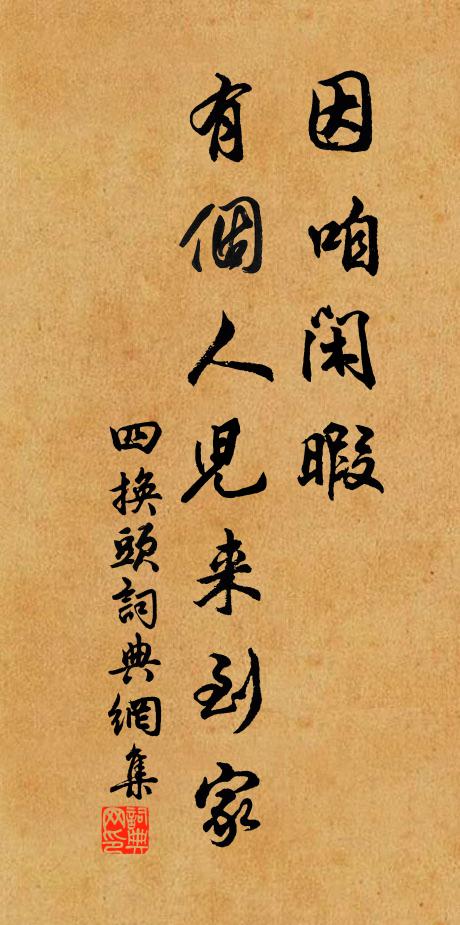 因咱閑暇
有個人兒来到家
四換頭詞典網集
詞典网印